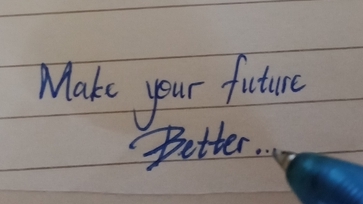 Make your future
Better...